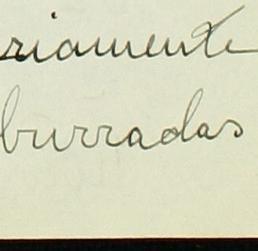 riamente
burradas